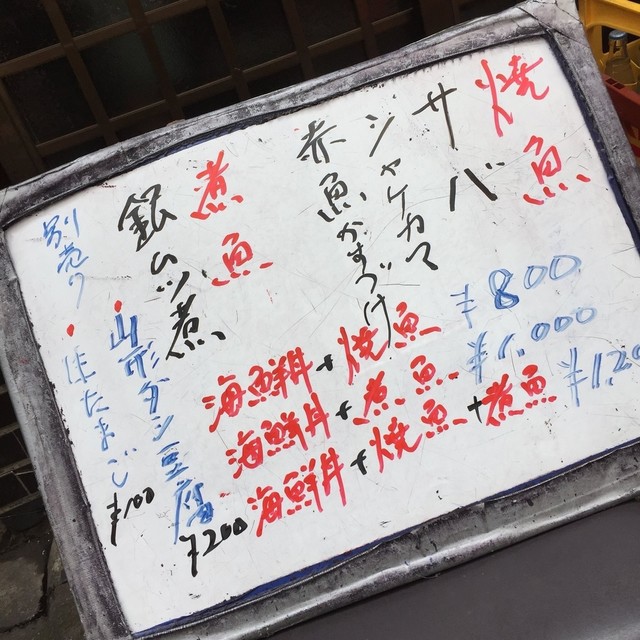 焼魚
サバ
シャケカマ
赤魚かすづけ
煮魚
銀ムツ煮
海鮮丼+焼魚 ¥800
海鮮丼+煮魚 ¥1.000
海鮮丼+焼魚+煮魚 ¥1.20
別売り
・山形ダシ豆腐 ¥200
・生たまご ¥100